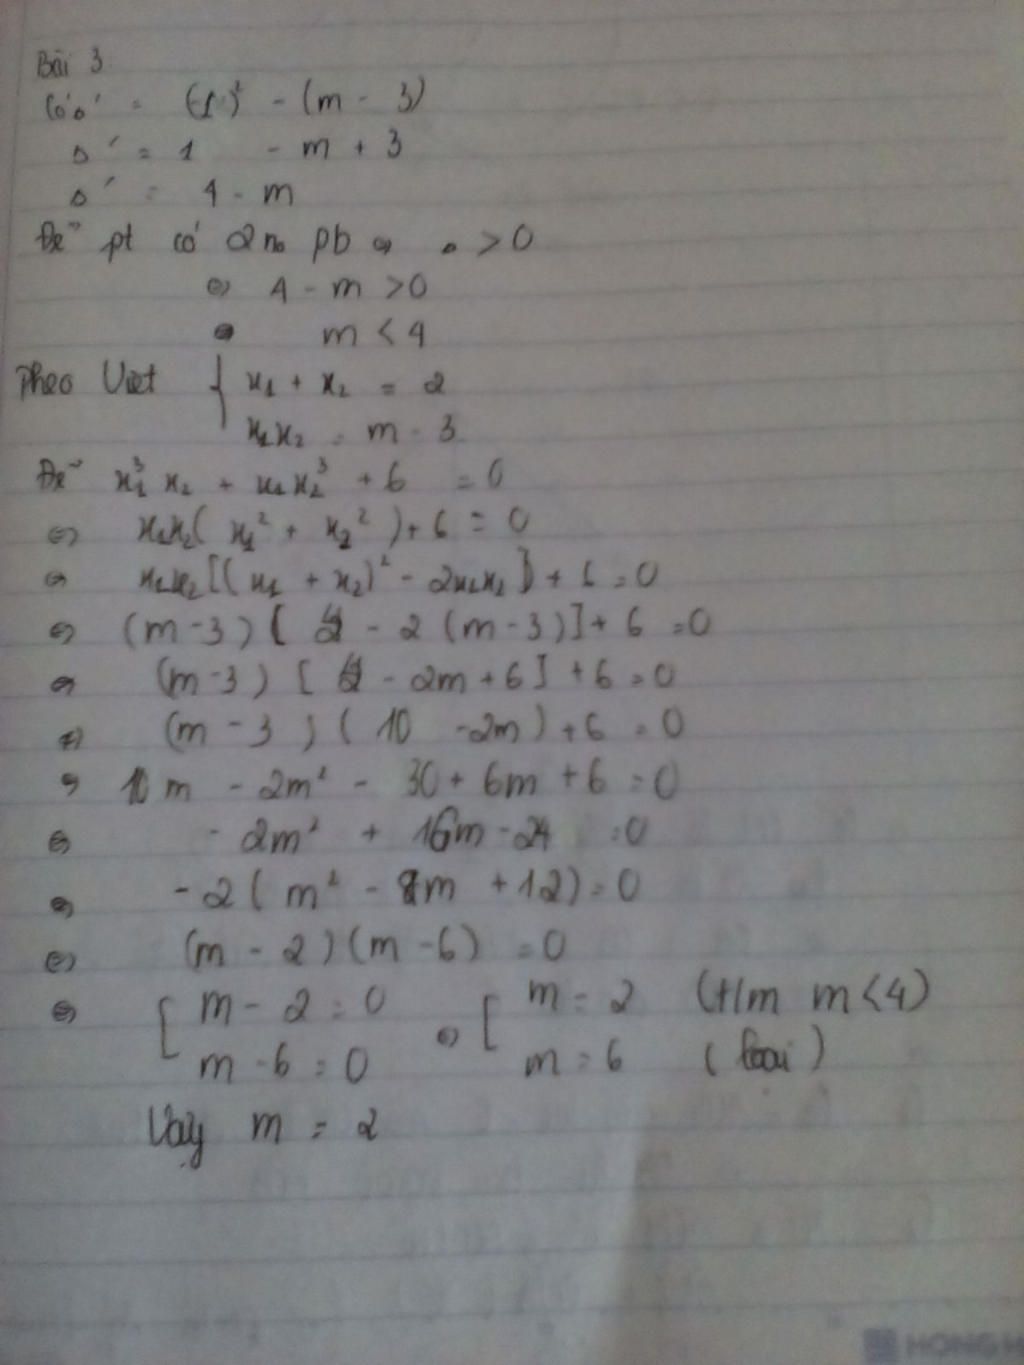 Bài 3
Có Δ' = (-1)² - (m - 3)
Δ' = 1 - m + 3
Δ' = 4 - m
Để pt có 2 no pb ⇔ Δ > 0
⇔ 4 - m > 0
⇔ m < 4
Theo Viet { x₁ + x₂ = 2
x₁x₂ = m - 3
Để x₁³x₂ + x₁x₂³ + 6 = 0
⇔ x₁x₂( x₁² + x₂² ) + 6 = 0
⇔ x₁x₂[(x₁ + x₂)² - 2x₁x₂] + 6 = 0
⇔ (m - 3) [ 4 - 2 (m - 3)] + 6 = 0
⇔ (m - 3) [ 4 - 2m + 6 ] + 6 = 0
⇔ (m - 3) ( 10 - 2m ) + 6 = 0
⇔ 10m - 2m² - 30 + 6m + 6 = 0
⇔ - 2m² + 16m - 24 = 0
⇔ - 2 ( m² - 8m + 12) = 0
⇔ (m - 2)(m - 6) = 0
⇔ [ m - 2 = 0 ⇔ [ m = 2 (t/m m < 4)
m - 6 = 0 m = 6 (loại)
Vậy m = 2
HONG H